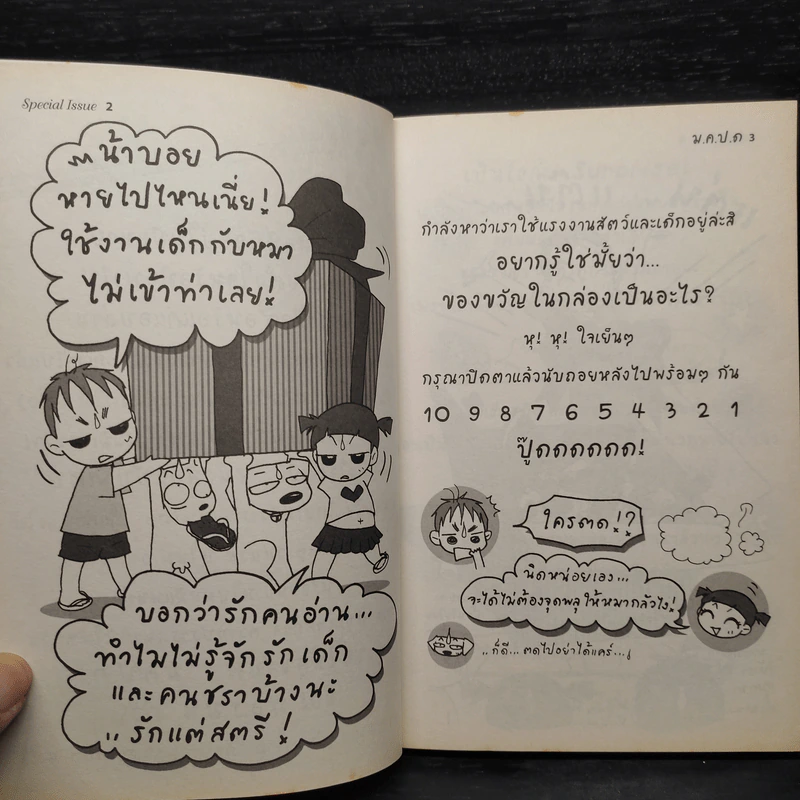 Special Issue 2
น้าบอย
หายไปไหนเนี่ย!
ใช้งานเด็กกับหมา
ไม่เข้าท่าเลย!
บอกว่ารักคนอ่าน...
ทำไมไม่รู้จักรักเด็ก
และคนชราบ้างนะ
..รักแต่สตรี!
ม.ค.ป.ด 3
กำลังหาว่าเราใช้แรงงานสัตว์และเด็กอยู่ล่ะสิ
อยากรู้ใช่มั้ยว่า...
ของขวัญในกล่องเป็นอะไร?
หุ! หุ! ใจเย็นๆ
กรุณาปิดตาแล้วนับถอยหลังไปพร้อมๆ กัน
10 9 8 7 6 5 4 3 2 1
ปู๊ดดดดดด!
ใครตด!?
?
นิดหน่อยเอง...
จะได้ไม่ต้องจุดพลุให้หมากลัวไง!
..ก็ดี...ตดไปอย่าได้แคร์...!